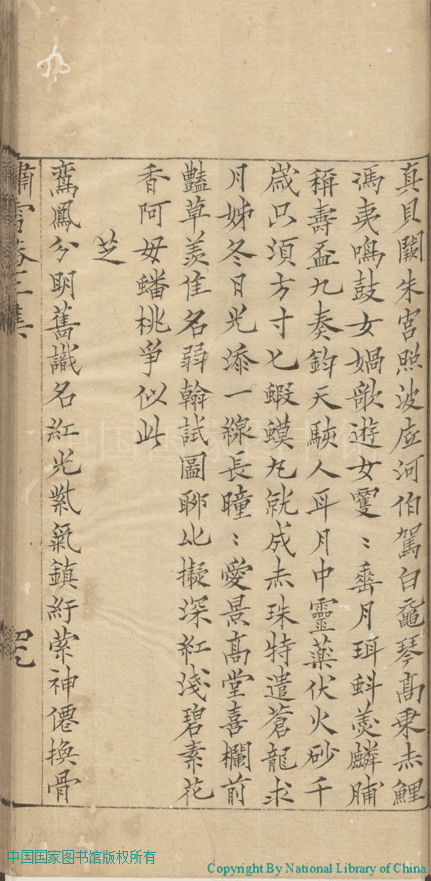 真貝闕朱宮照波底河伯駕白黿琴高乘赤鯉
馮夷鳴鼓女媧歌遊女霎〻垂月珥斟羹麟脯
稱壽盃九奏鈞天駭人耳月中靈藥伏火砂千
歲只須方寸匕蝦蟆丸就成赤珠特遣蒼龍求
月姊冬日光添一線長曈〻愛景高堂喜欄前
豔草羙佳名弱翰試圖聊比擬深紅淺碧素花
香阿母蟠桃爭似此
芝
鸞鳳分明舊識名紅光紫氣鎮紆縈神僊換骨
中国国家图书馆版权所有
Copyright By National Library of China